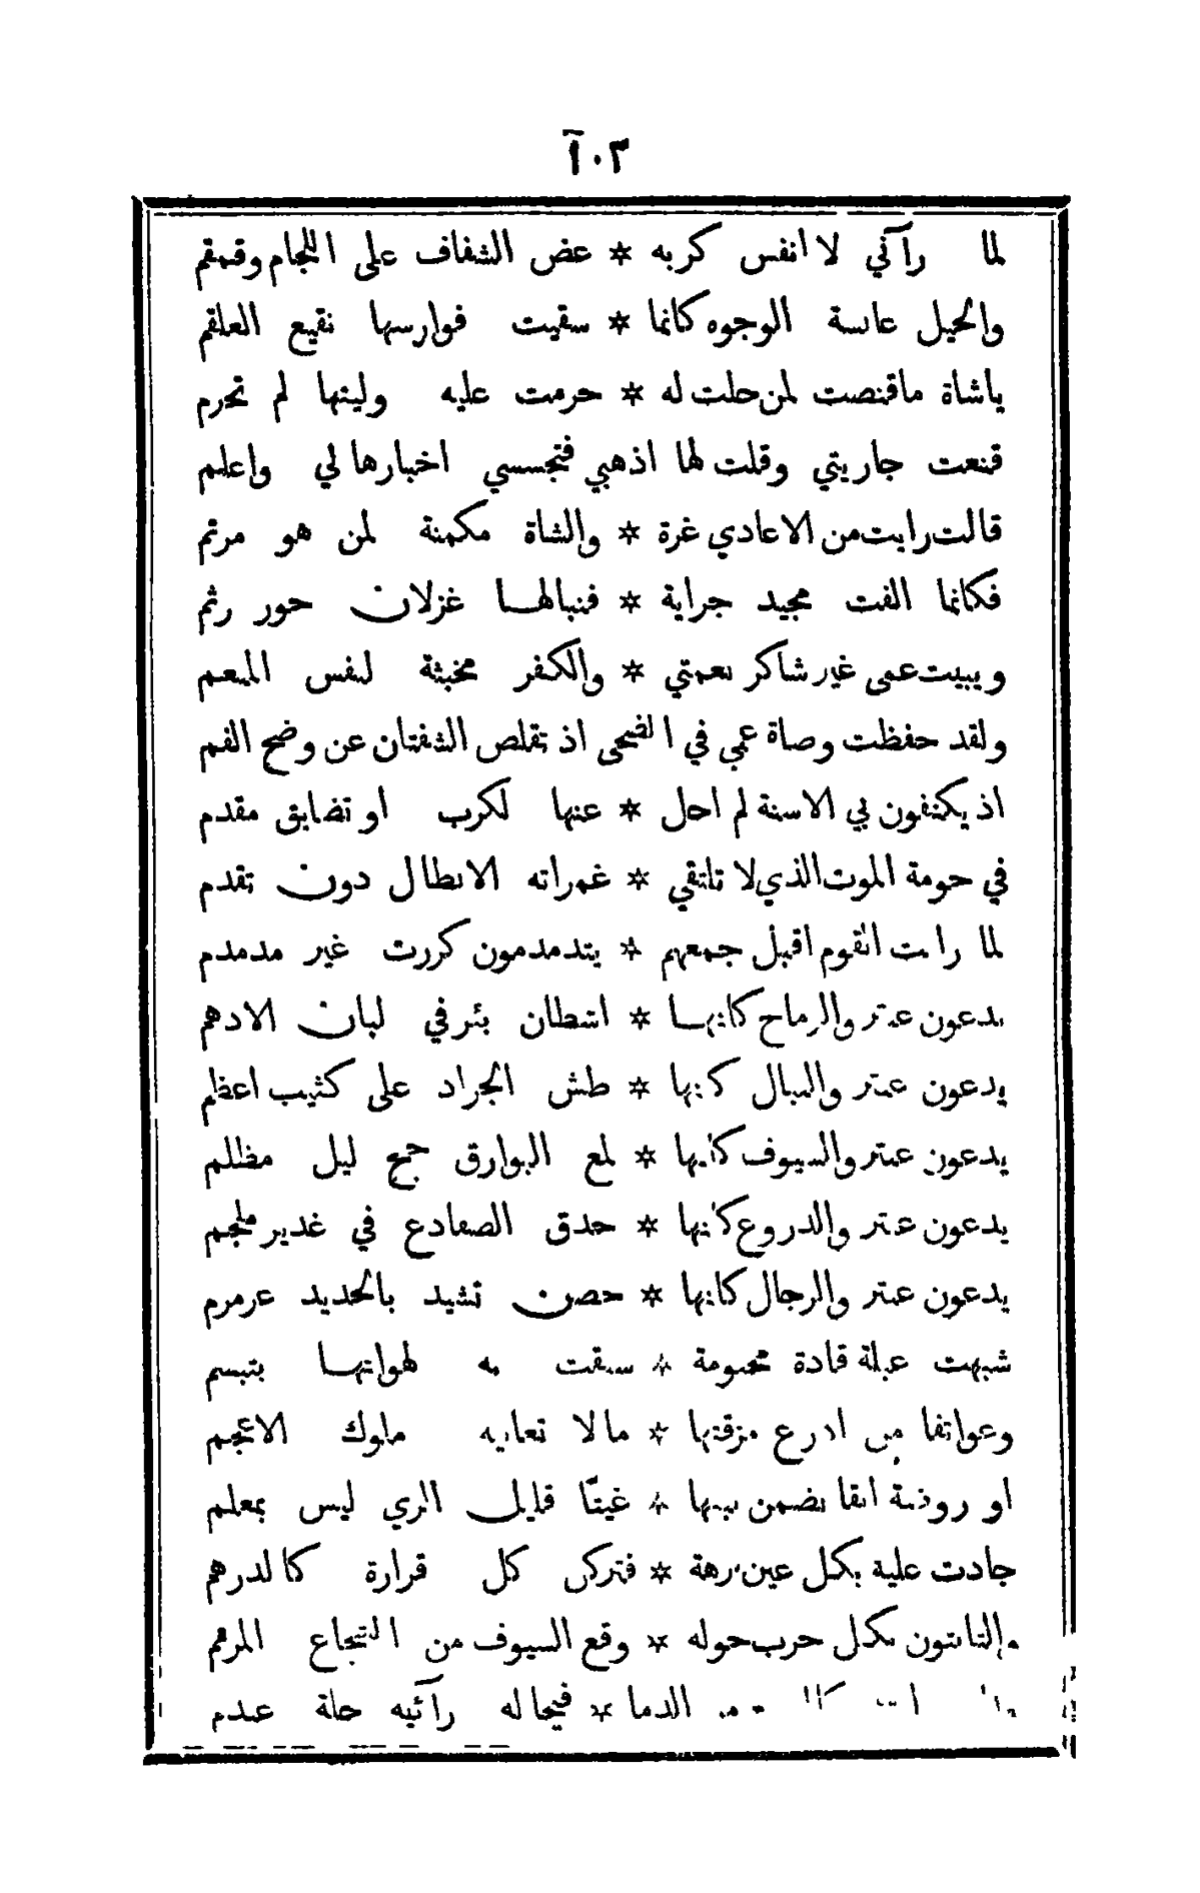 ٢٠٣
لما رآني لا انفس كربه * عض الشفاف على اللجام وقمقم
والخيل عابسة الوجوه كانما * سقيت فوارسها نقيع العلقم
ياشاة ماقنصت لمن حلت له * حرمت عليه وليتها لم تحرم
قنعت جاريتي وقلت لها اذهبي فتجسسي اخبارها لي واعلم
قالت رايت من الاعادي غرة * والشاة مكمنة لمن هو مرتم
فكانما الفت مجيد جراية * فنبالها غزلان حور رثم
ويبيت عمي غير شاكر نعمتي * والكفر مخبثة لنفس المنعم
ولقد حفظت وصاة عمي في الضحى اذ تقلص الشفتان عن وضح الفم
اذ يكنفون بي الاسنة لم احل * عنها لكرب او تضايق مقدم
في حومة الموت الذي لا تلتقي * غمراته الابطال دون تقدم
لما رايت القوم اقبل جمعهم * يتدمدمون كررت غير مدمدم
يدعون عنتر والرماح كانها * اشطان بئر في لبان الادهم
يدعون عنتر والنبال كانها * طش الجراد على كثيب اعظم
يدعون عنتر والسيوف كانها * لمع البوارق جمح ليل مظلم
يدعون عنتر والدروع كانها * حدق الضفادع في غدير ملجم
يدعون عنتر والرجال كانها * حصن تشيد بالحديد عرمرم
شبهت عبلة قادة مختومة * سبقت به لهواتها بتبسم
وعواتقا من ادرع مزقتها * مالا تعابيه ملوك الاعجم
او روضة انقا تضمن نبتها * غيثًا قليل الري ليس بمعلم
جادت علية بكل عين برهة * فتركن كل قرارة كالدرهم
والتابتون بكل حرب حوله * وقع السيوف من التجاع المرم
الدما * فيحاله رآئيه حلة عندم